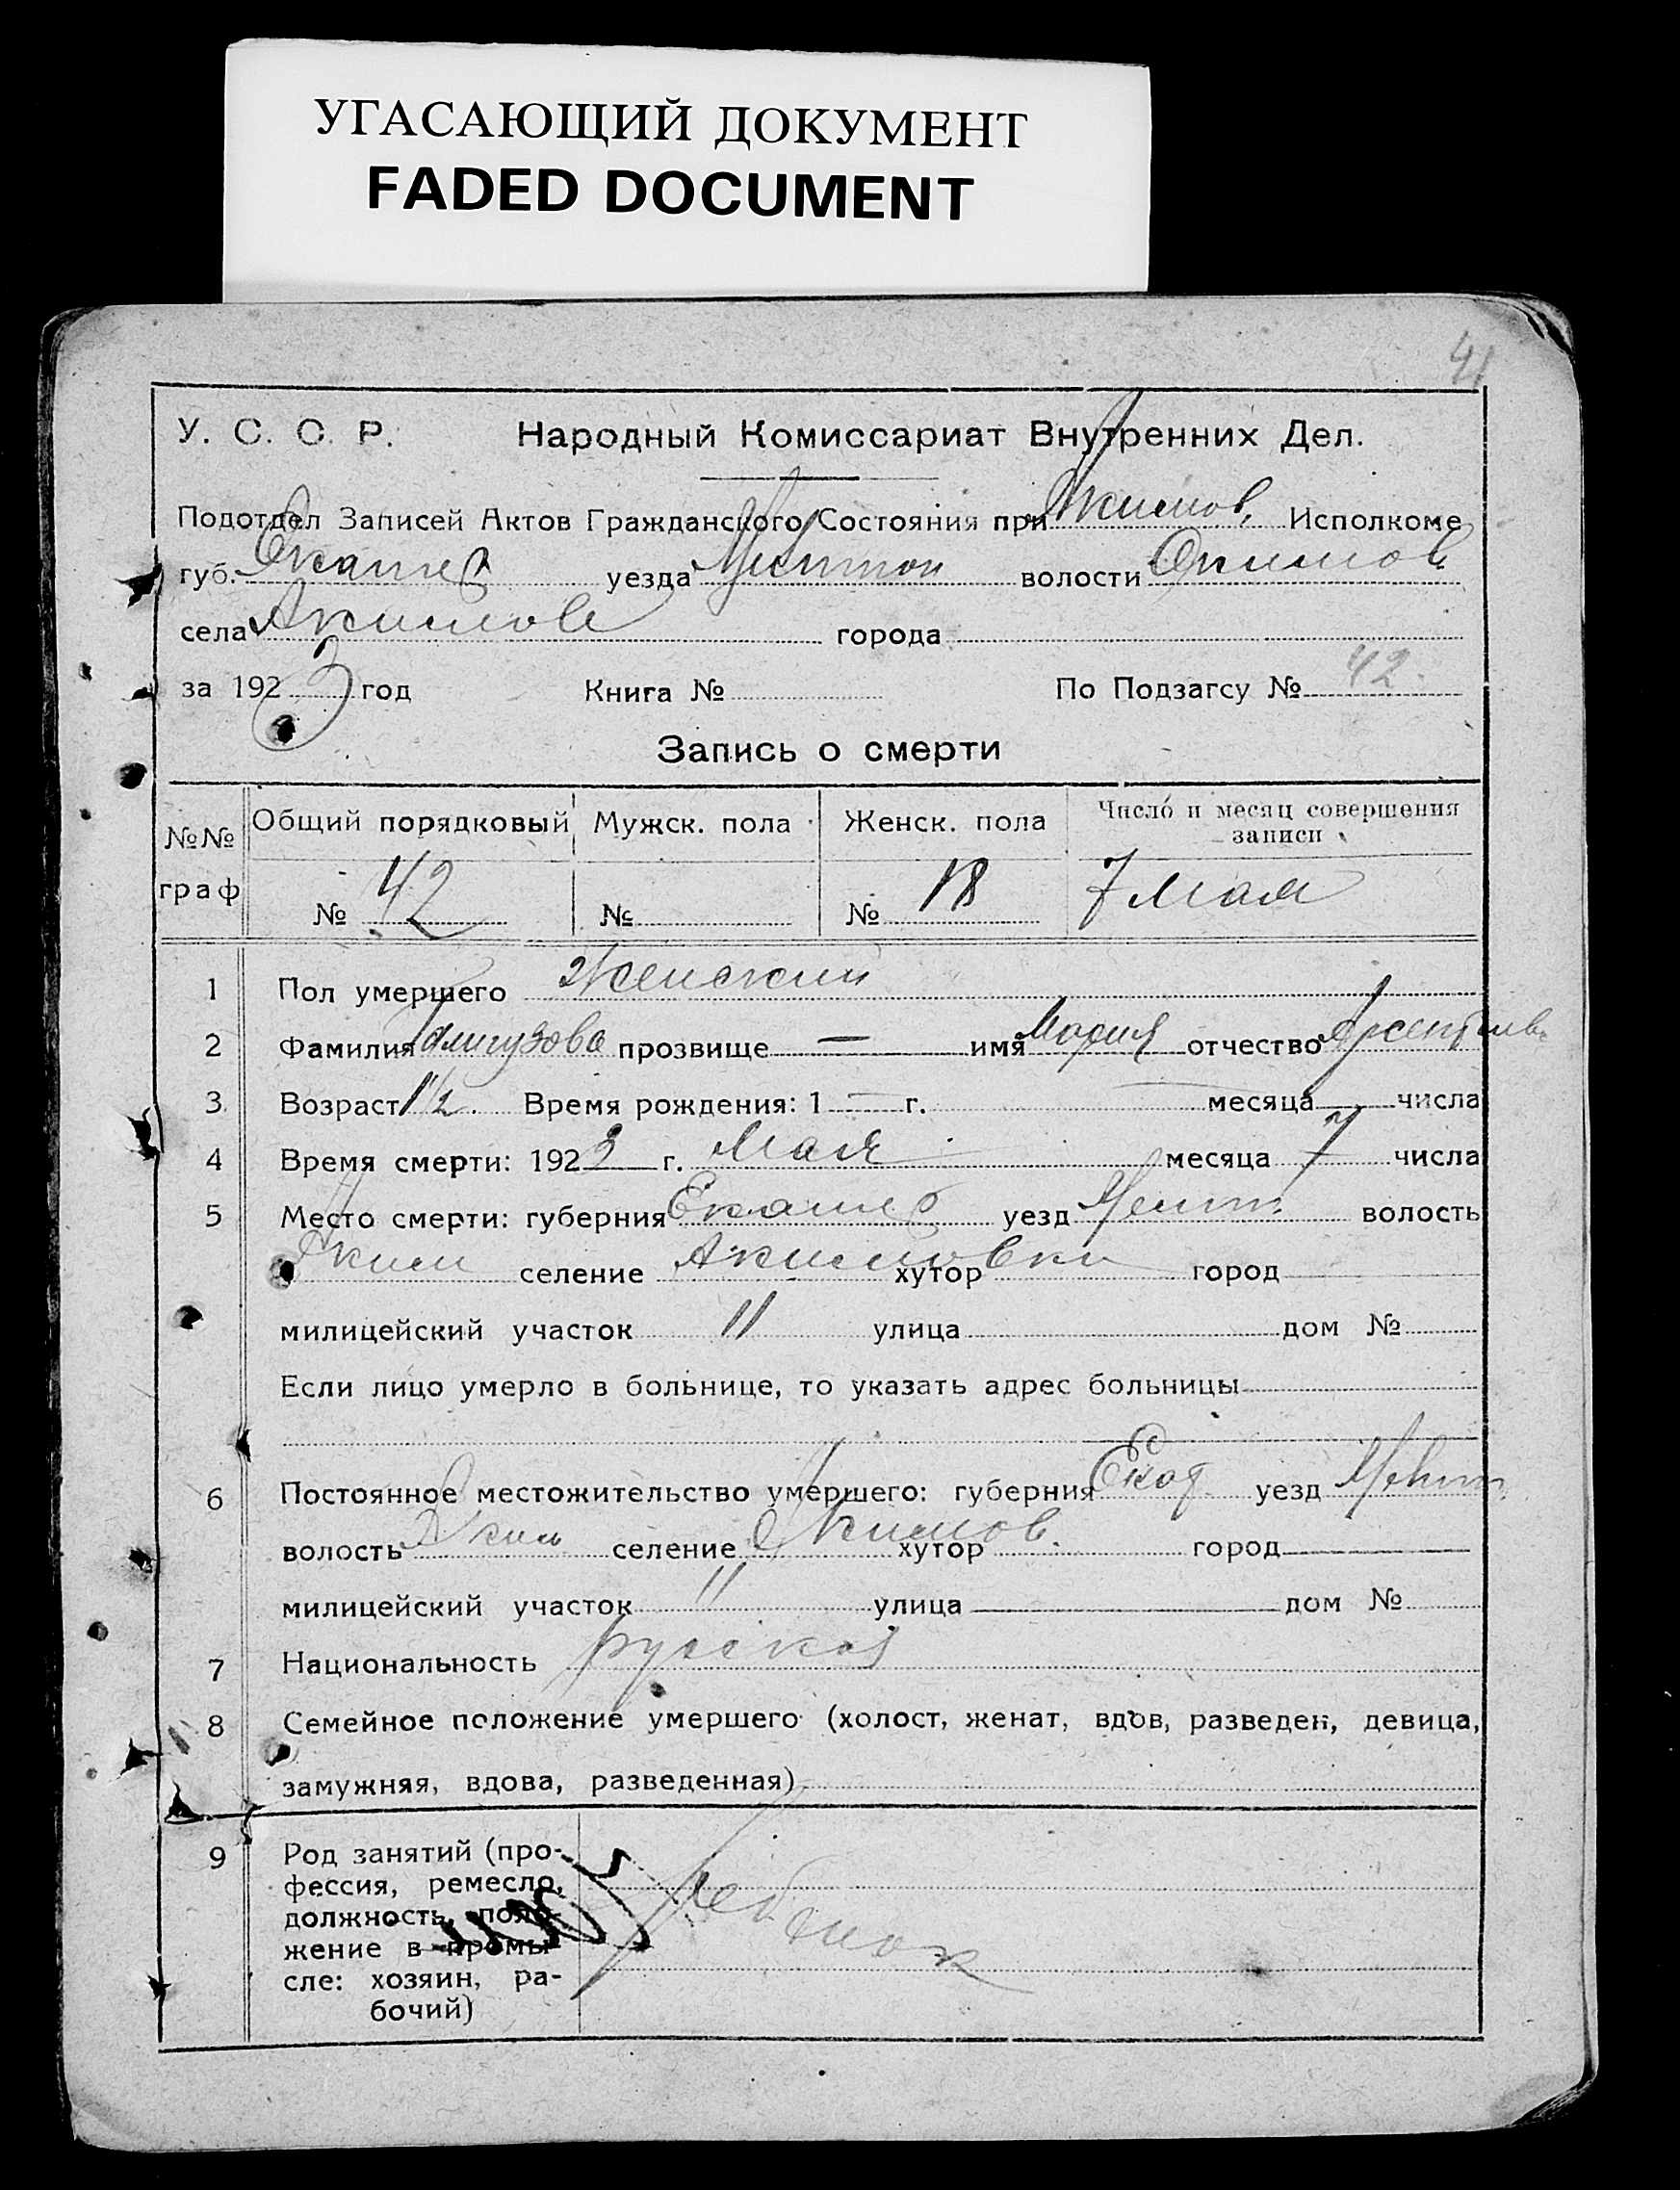 УГАСАЮЩИЙ ДОКУМЕНТ
FADED DOCUMENT
41
У. С. С. Р. Народный Комиссариат Внутренних Дел.
Подотдел Записей Актов Гражданского Состояния при Акимов. Исполкоме
губ. Екатер уезда волости Акимов
села Акимов города
за 1923 год Книга № По Подзагсу № 42.
Запись о смерти
№№ граф Общий порядковый Мужск. пола Женск. пола Число и месяц совершения записи
№ 42 № № 18 7 Мая
1 Пол умершего Женский
2 Фамилия прозвище — имя Мария отчество
3 Возраст 1½. Время рождения: 1 — г. месяца числа
4 Время смерти: 1923 г. Мая месяца 7 числа
5 Место смерти: губерния Екатер уезд Мелит. волость
Аким селение Акимовки хутор город
милицейский участок 11 улица дом №
Если лицо умерло в больнице, то указать адрес больницы
6 Постоянное местожительство умершего: губерния Екат. уезд Мелит.
волость Аким селение Акимов. хутор город
милицейский участок 11 улица дом №
7 Национальность русская
8 Семейное положение умершего (холост, женат, вдов, разведен, девица,
замужняя, вдова, разведенная)
9 Род занятий (про-
фессия, ремесло,
должность, поло-
жение в промы-
сле: хозяин, ра-
бочий)
ребенок